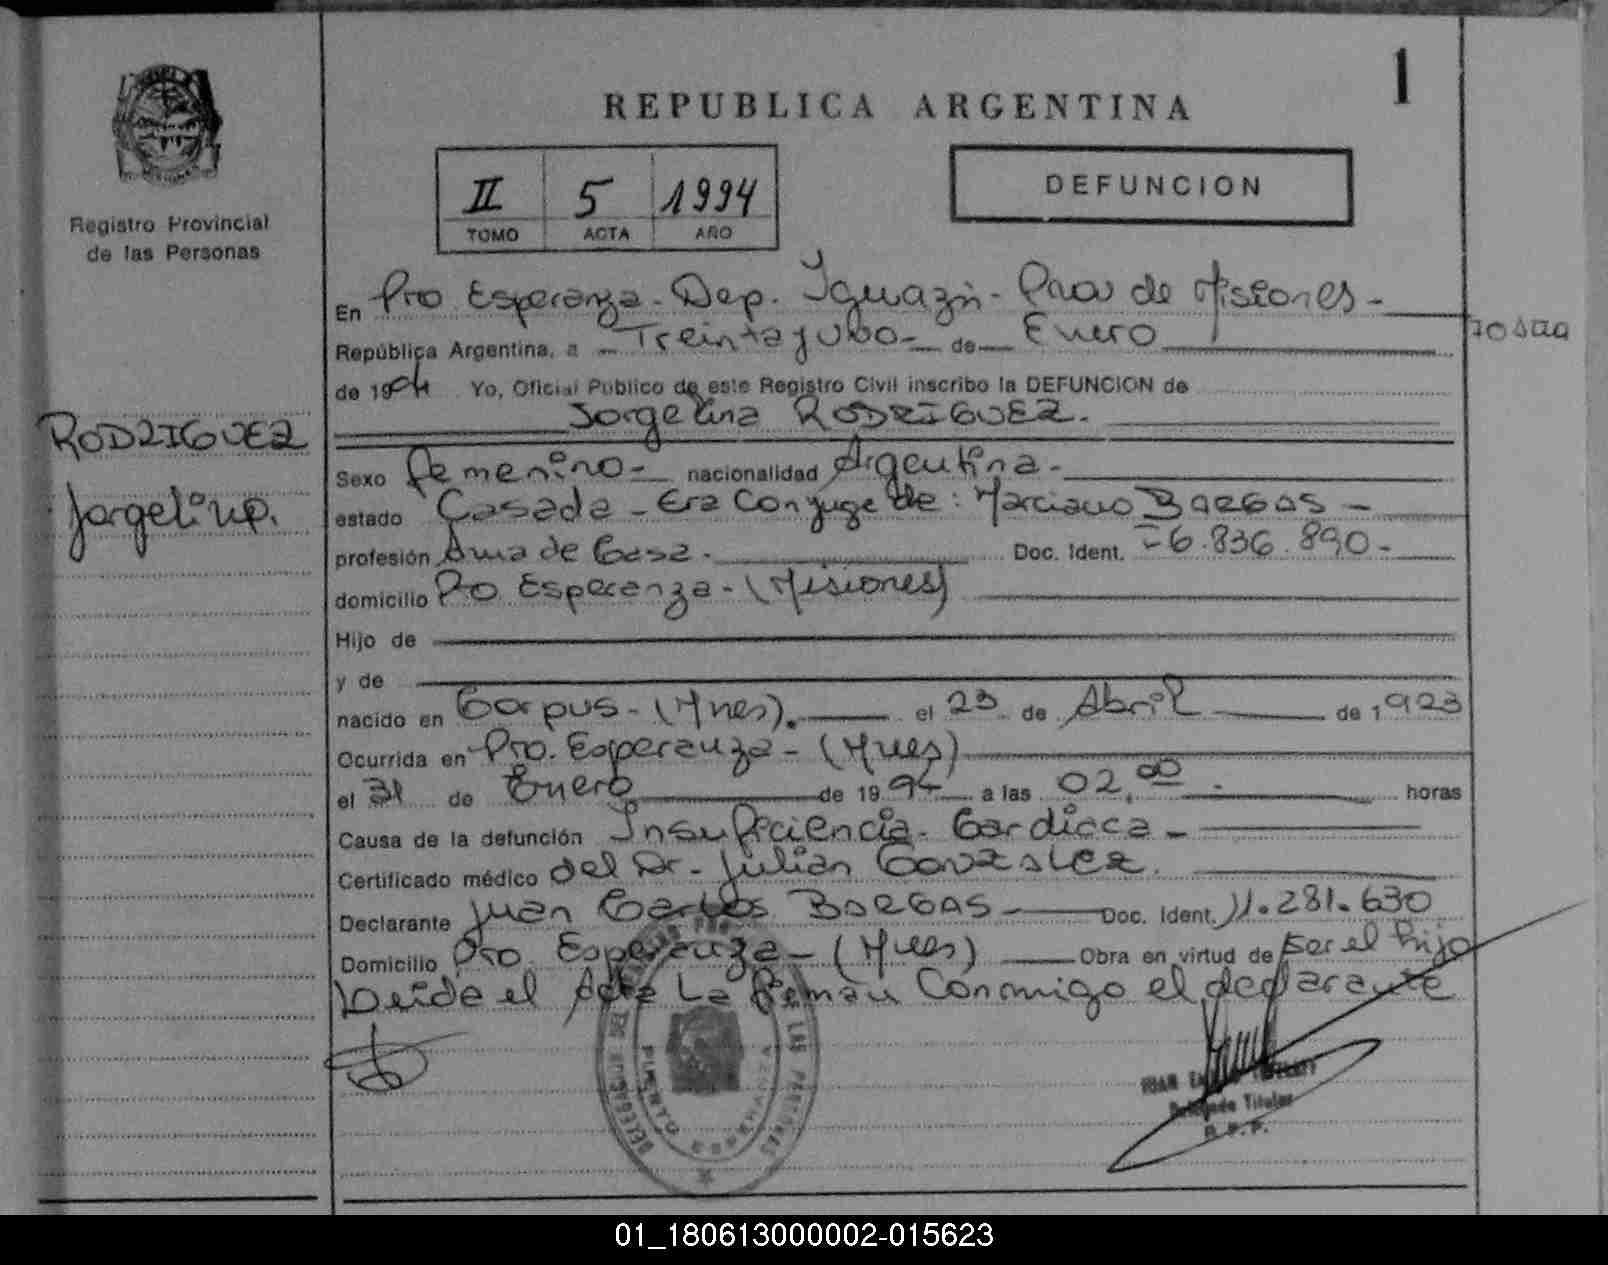 1
REPUBLICA ARGENTINA
Registro Provincial
de las Personas
II 5 1994
TOMO ACTA AÑO
DEFUNCION
En Pto Esperanza - Dep. Iguazú - Prov de Misiones -
República Argentina, a Treinta y Uno - de Enero
de 1994 Yo, Oficial Público de este Registro Civil inscribo la DEFUNCION de
Jorgelina RODRIGUEZ.
RODRIGUEZ
Jorgelina.
Sexo Femenino - nacionalidad Argentina -
estado Casada - Era Conyuge de: Marciano BARGAS -
profesión Ama de Casa. Doc. Ident. 6.836.890 -
domicilio Pto Esperanza - (Misiones)
Hijo de
y de
nacido en Corpus - (Mnes). el 23 de Abril de 1923
Ocurrida en Pto. Esperanza - (Mnes)
el 31 de Enero de 1994 a las 02,00 horas
Causa de la defunción Insuficiencia - Cardiaca -
Certificado médico del Dr - Julian GONZALEZ.
Declarante Juan Carlos BARGAS - Doc. Ident. 11.281.630
Domicilio Pto. Esperanza - (Mnes) Obra en virtud de Ser el hijo
Leida el Acta La Firman Conmigo el declarante
DE LAS PERSONAS
PUERTO ESPERANZA
JUAN
Delegado Titular
R. P. P.
01_180613000002-015623